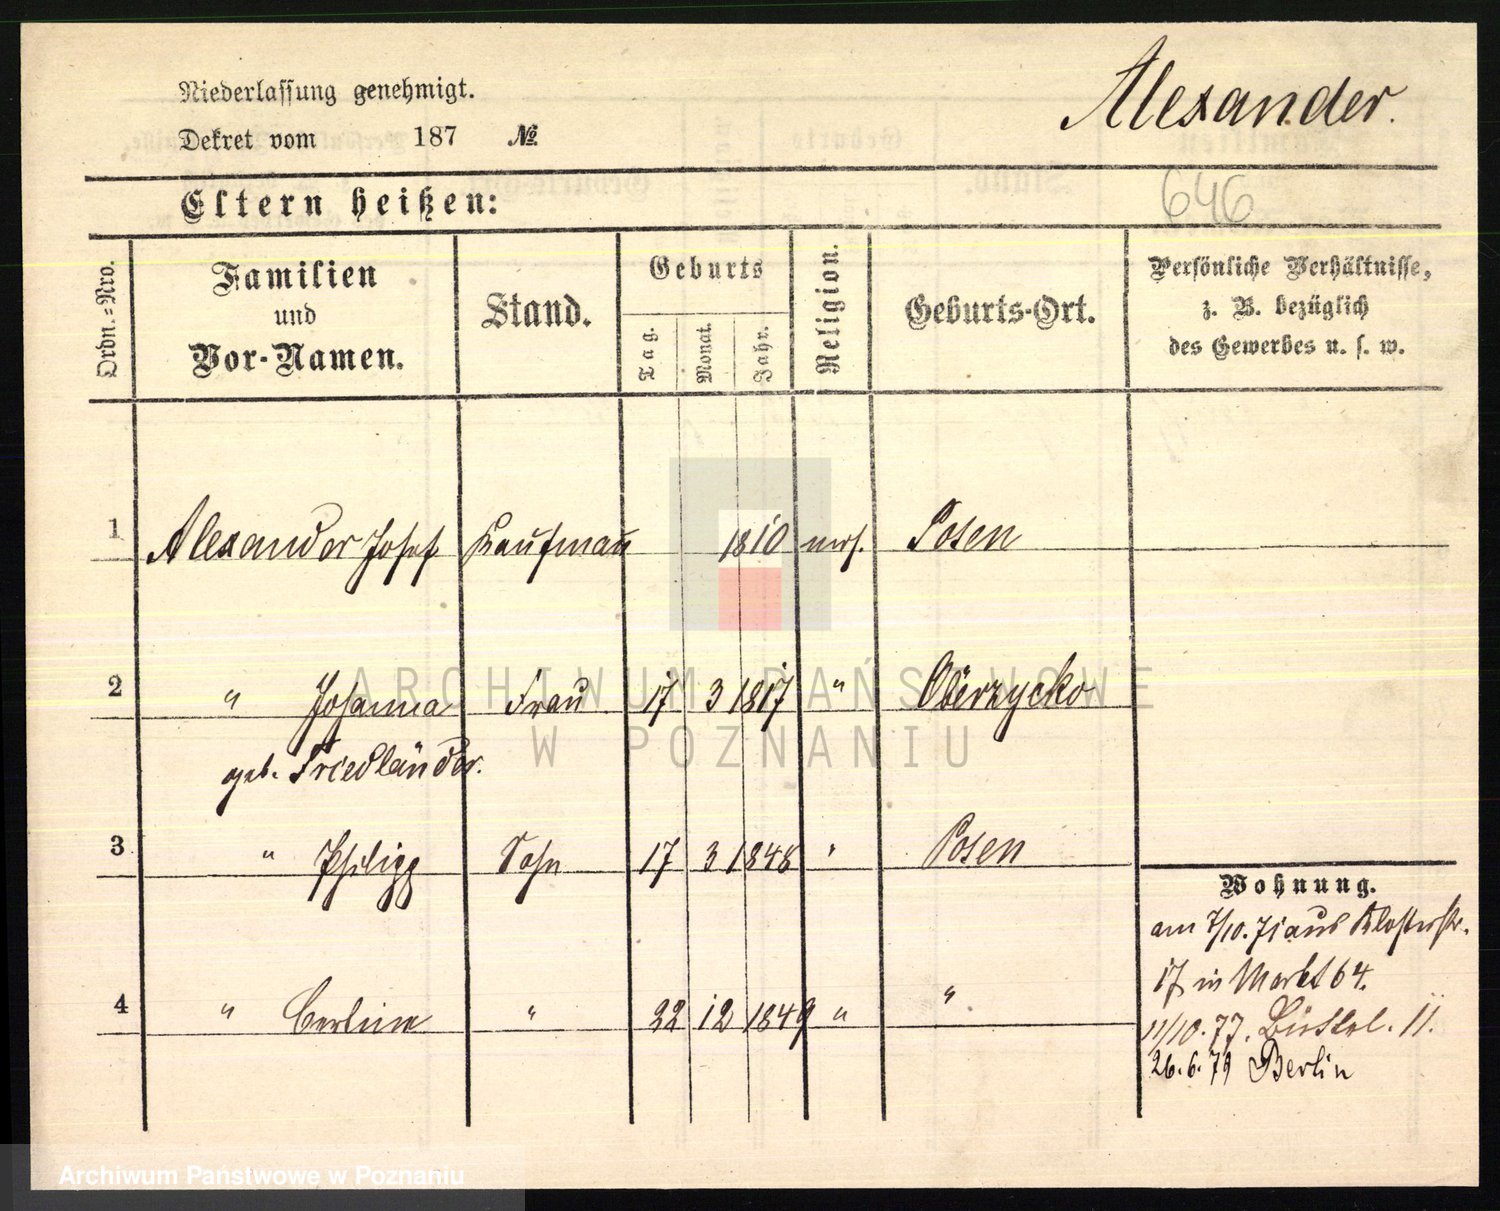 Niederlassung genehmigt.
Alexander.
Dekret vom 187 №
646
Eltern heißen:
Ordn.=Nro.
Familien
und
Vor-Namen.
Stand.
Geburts
Tag.
Monat.
Jahr.
Religion.
Geburts-Ort.
Persönliche Verhältnisse,
z. B. bezüglich
des Gewerbes u. s. w.
1 Alexander Josef Kaufmann 1810 mos. Posen
2 " Johanna Frau 17 3 1817 " Obërzycko
geb. Friedländer.
3 " Philipp Sohn 17 3 1848 " Posen
Wohnung.
am 7/10. 71 aus Klosterstr.
17 in Markt 64.
4 " " 22 12 1849 " "
11/10. 77. Büttel. 11.
26. 6. 79 Berlin
ARCHIWUM PAŃSTWOWE
W POZNANIU
Archiwum Państwowe w Poznaniu